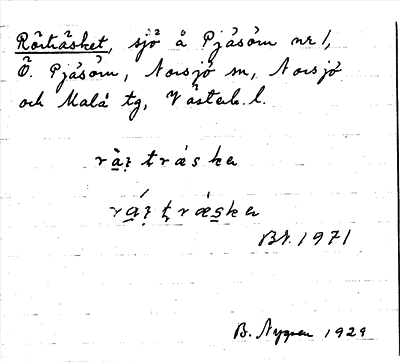 Rörträsket, sjö å Pjäsörn nr 1,
Ö. Pjäsörn, Norsjö sn, Norsjö
och Malå tg, Västerb. l.
rä̀ṛ träska
rä́ṛ træska
BN. 1971
B. Nygren 1929